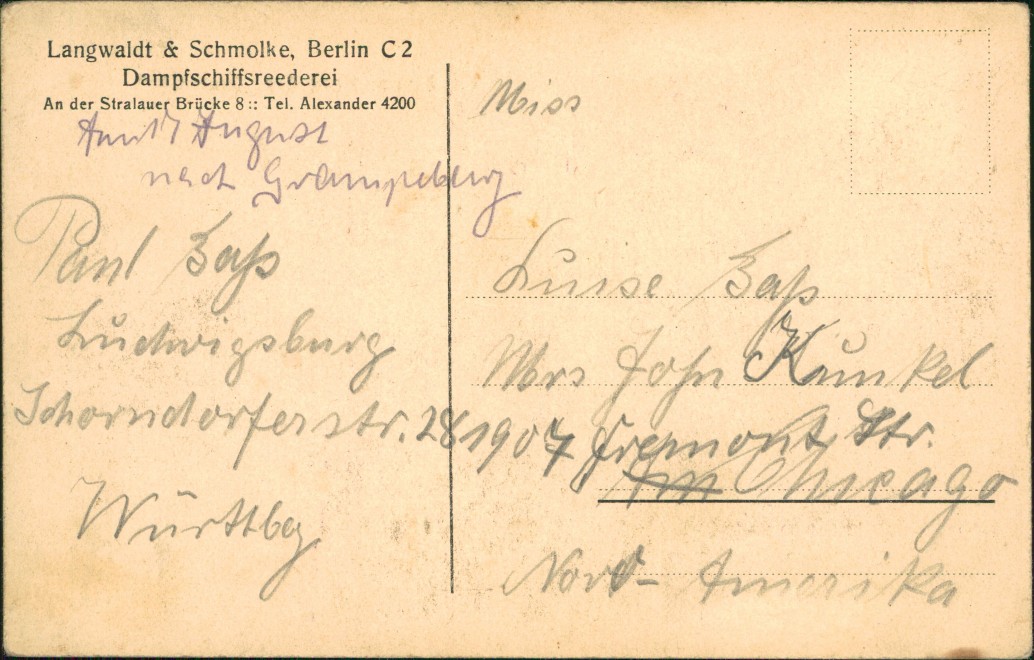 Langwaldt & Schmolke, Berlin C 2
Dampfschiffsreederei
An der Stralauer Brücke 8 :: Tel. Alexander 4200
August
nach
Paul Baß
Ludwigsburg
Schorndorferstr. 28
Württbg
Miss
Luise Baß
Mrs John Kunkel
1907 Fremont Str.
Chicago
Nord-Amerika